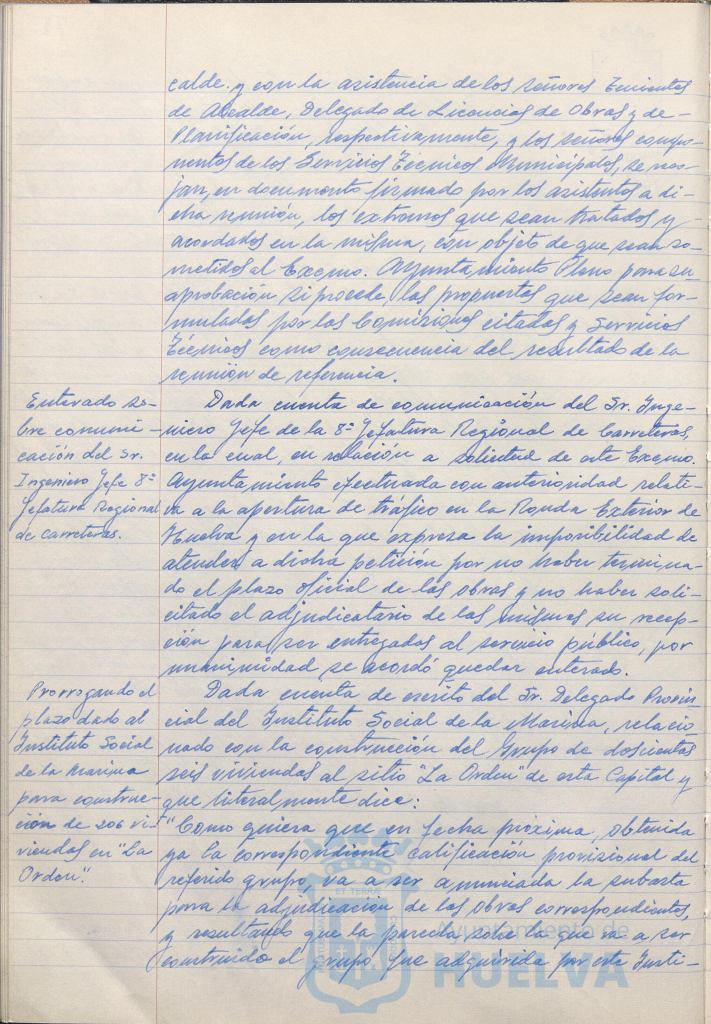 calde. y con la asistencia de los señores Tenientes
de Alcalde, Delegado de Licencias de Obras y de
Planificación, respectivamente, y los señores compo-
nentes de los Servicios Técnicos Municipales, se reco-
jan, en documento firmado por los asistentes a di-
cha reunión, los extremos que sean tratados y
acordados en la misma, con objeto de que sean so-
metidos al Excmo. Ayuntamiento Pleno para su
aprobación si procede, las propuestas que sean for-
muladas por las Comisiones citadas y Servicios
Técnicos como consecuencia del resultado de la
reunión de referencia.
Enterado so-
bre comuni-
cación del Sr.
Ingeniero Jefe 8ª
Jefatura Regional
de carreteras.
Dada cuenta de comunicación del Sr. Inge-
niero Jefe de la 8ª Jefatura Regional de Carreteras,
en la cual, en relación a solicitud de este Excmo.
Ayuntamiento efectuada con anterioridad relati-
va a la apertura de tráfico en la Ronda Exterior de
Huelva y en la que expresa la imposibilidad de
atender a dicha petición por no haber termina-
do el plazo oficial de las obras y no haber soli-
citado el adjudicatario de las mismas su recep-
ción para ser entregadas al servicio público, por
unanimidad se acordó quedar enterado.
Prorrogando el
plazo dado al
Instituto Social
de la Marina
para construc-
ción de 206 vi-
viendas en "La
Orden".
Dada cuenta de escrito del Sr. Delegado Provin-
cial del Instituto Social de la Marina, relacio-
nado con la construcción del Grupo de doscientas
seis viviendas al sitio "La Orden" de esta Capital y
que literalmente dice:
"Como quiera que en fecha próxima, obtenida
ya la correspondiente calificación provisional del
referido grupo, va a ser anunciada la subasta
para la adjudicación de las obras correspondientes,
y resultando que la parcela sobre la que va a ser
construido el grupo fue adquirida por este Insti-
ET TERRÆ
Ayuntamiento de
HUELVA